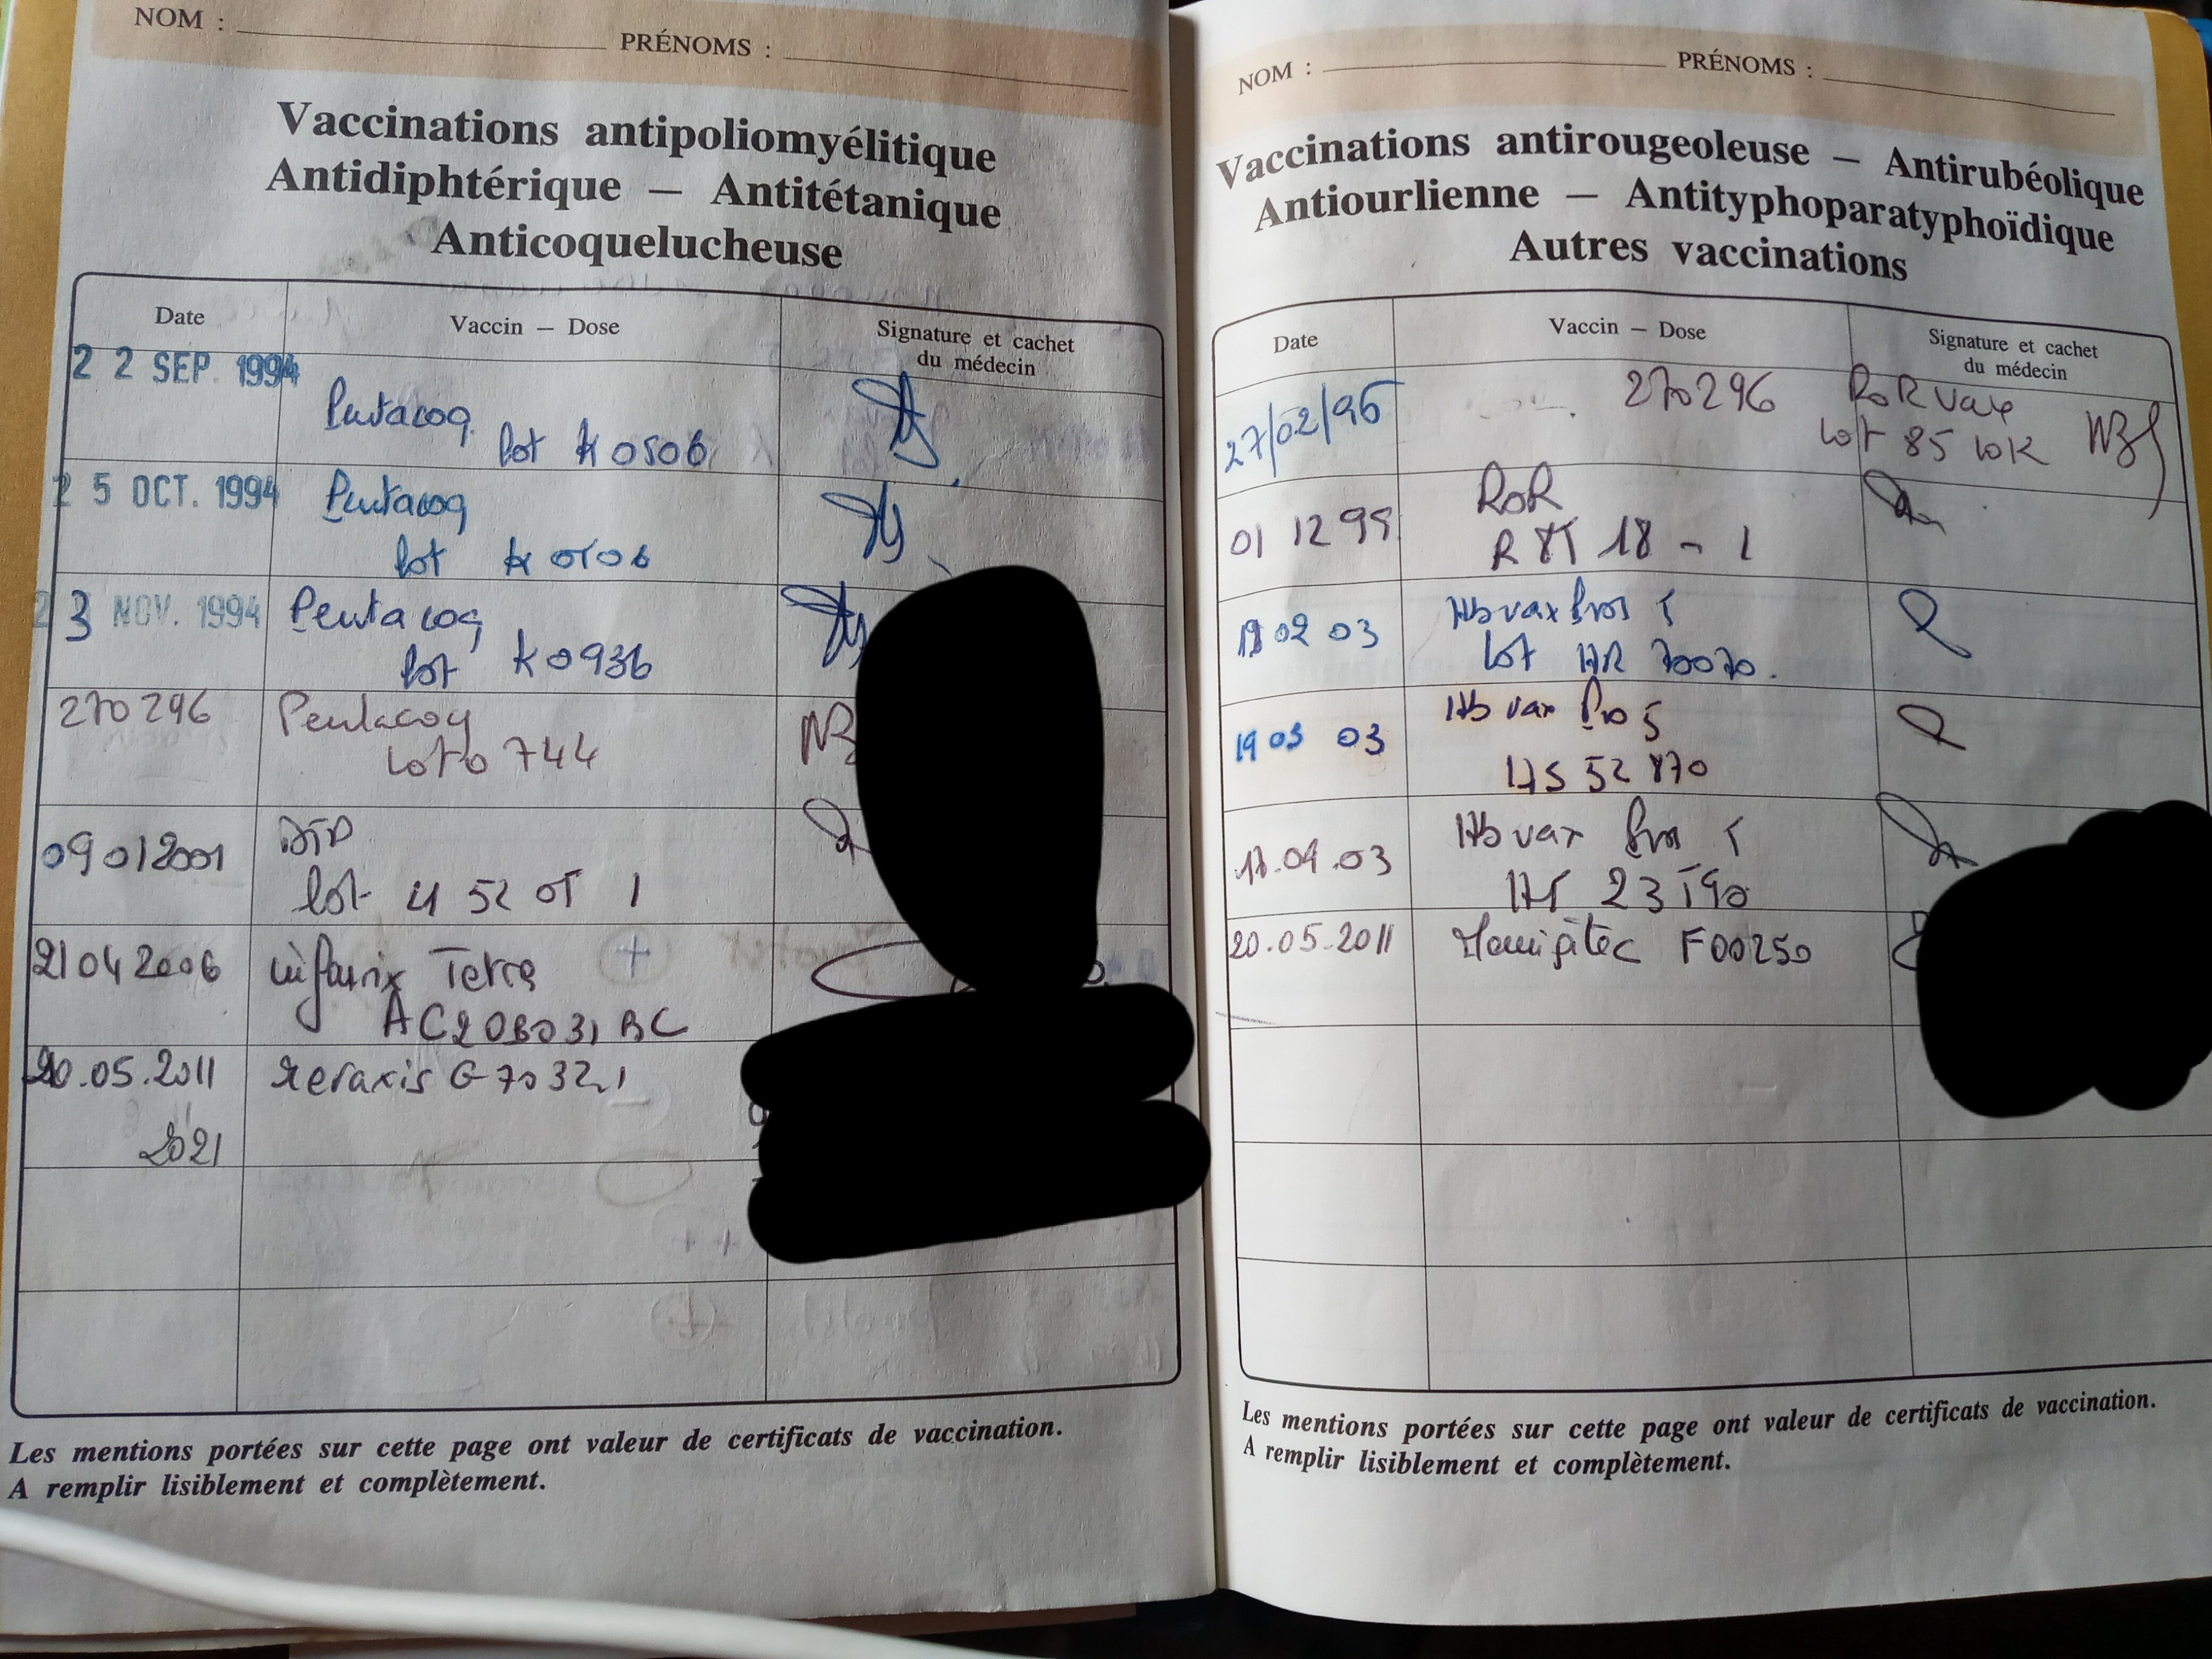 NOM : PRÉNOMS :
Vaccinations antipoliomyélitique
Antidiphtérique — Antitétanique
Anticoquelucheuse
Date Vaccin — Dose Signature et cachet
du médecin
22 SEP. 1994
Pentacoq
lot K0506
25 OCT. 1994 Pentacoq
lot K0506
23 NOV. 1994 Pentacoq
lot K0936
270296 Pentacoq
lot 0744
09 01 2001 DTP
lot
21 04 2006 infanrix Tetra
AC20B031BC
20.05.2011 revaxis G7032.1
2021
Les mentions portées sur cette page ont valeur de certificats de vaccination.
A remplir lisiblement et complètement.
NOM : PRÉNOMS :
Vaccinations antirougeoleuse — Antirubéolique
Antiourlienne — Antityphoparatyphoïdique
Autres vaccinations
Date Vaccin — Dose Signature et cachet
du médecin
27/02/96 270296 RoRvax
lot 8510K
01 12 99 RoR
18 - 1
02 03 Hbvax Pro 5
lot HR 70070.
19 03 03 Hb vax Pro 5
HS 52870
04.03 Hb vax Pro 5
20.05.2011 F00250
Les mentions portées sur cette page ont valeur de certificats de vaccination.
A remplir lisiblement et complètement.